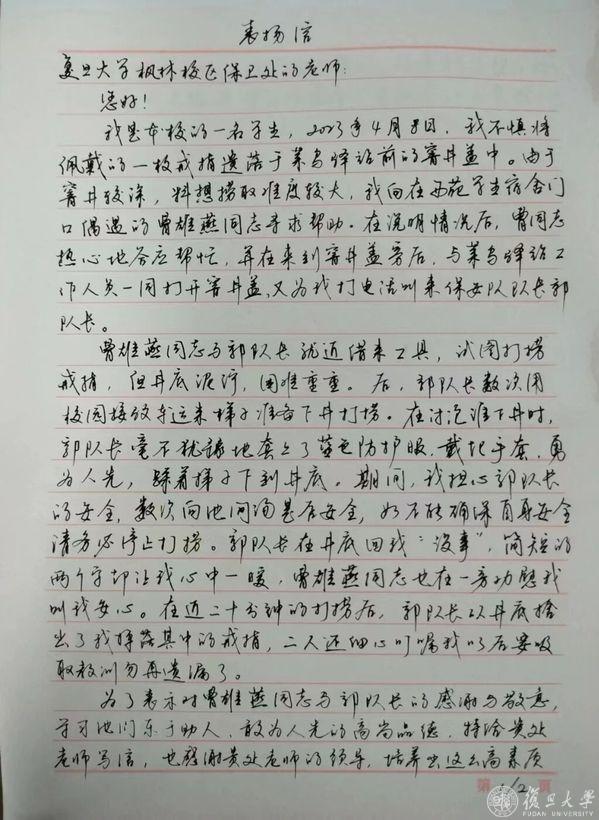 表扬信
复旦大学枫林校区保卫处的老师：
您好！
我是本校的一名学生，2023年4月8日，我不慎将
佩戴的一枚戒指遗落于菜鸟驿站前的窨井盖中。由于
窨井较深，料想捞取难度较大，我向在西苑学生宿舍门
口偶遇的雄燕同志寻求帮助。在说明情况后，同志
热心地答应帮忙，并在来到窨井盖旁后，与菜鸟驿站工
作人员一同打开窨井盖，又为我打电话叫来保安队队长郭
队长。
雄燕同志与郭队长就近借来工具，试图打捞
戒指，但井底泥泞，困难重重。后，郭队长数次用
校园接驳车运来梯子准备下井打捞。在讨论谁下井时，
郭队长毫不犹豫地套上了蓝色防护服，戴起手套，勇
为人先，踩着梯子下到井底。期间，我担心郭队长
的安全，数次向他问询是否安全，如不能确保自身安全
请务必停止打捞。郭队长在井底回我“没事”，简短的
两个字却让我心中一暖，雄燕同志也在一旁劝慰我
叫我安心。在近二十分钟的打捞后，郭队长从井底捡
出了我掉落其中的戒指，二人还细心叮嘱我以后要吸
取教训勿再遗漏了。
为了表示对雄燕同志与郭队长的感谢与敬意，
学习他们乐于助人、敢为人先的高尚品德，特给贵处
老师写信，也感谢贵处老师的领导，培养出这么高素质
第 1/2 页
復旦大學
FUDAN UNIVERSITY